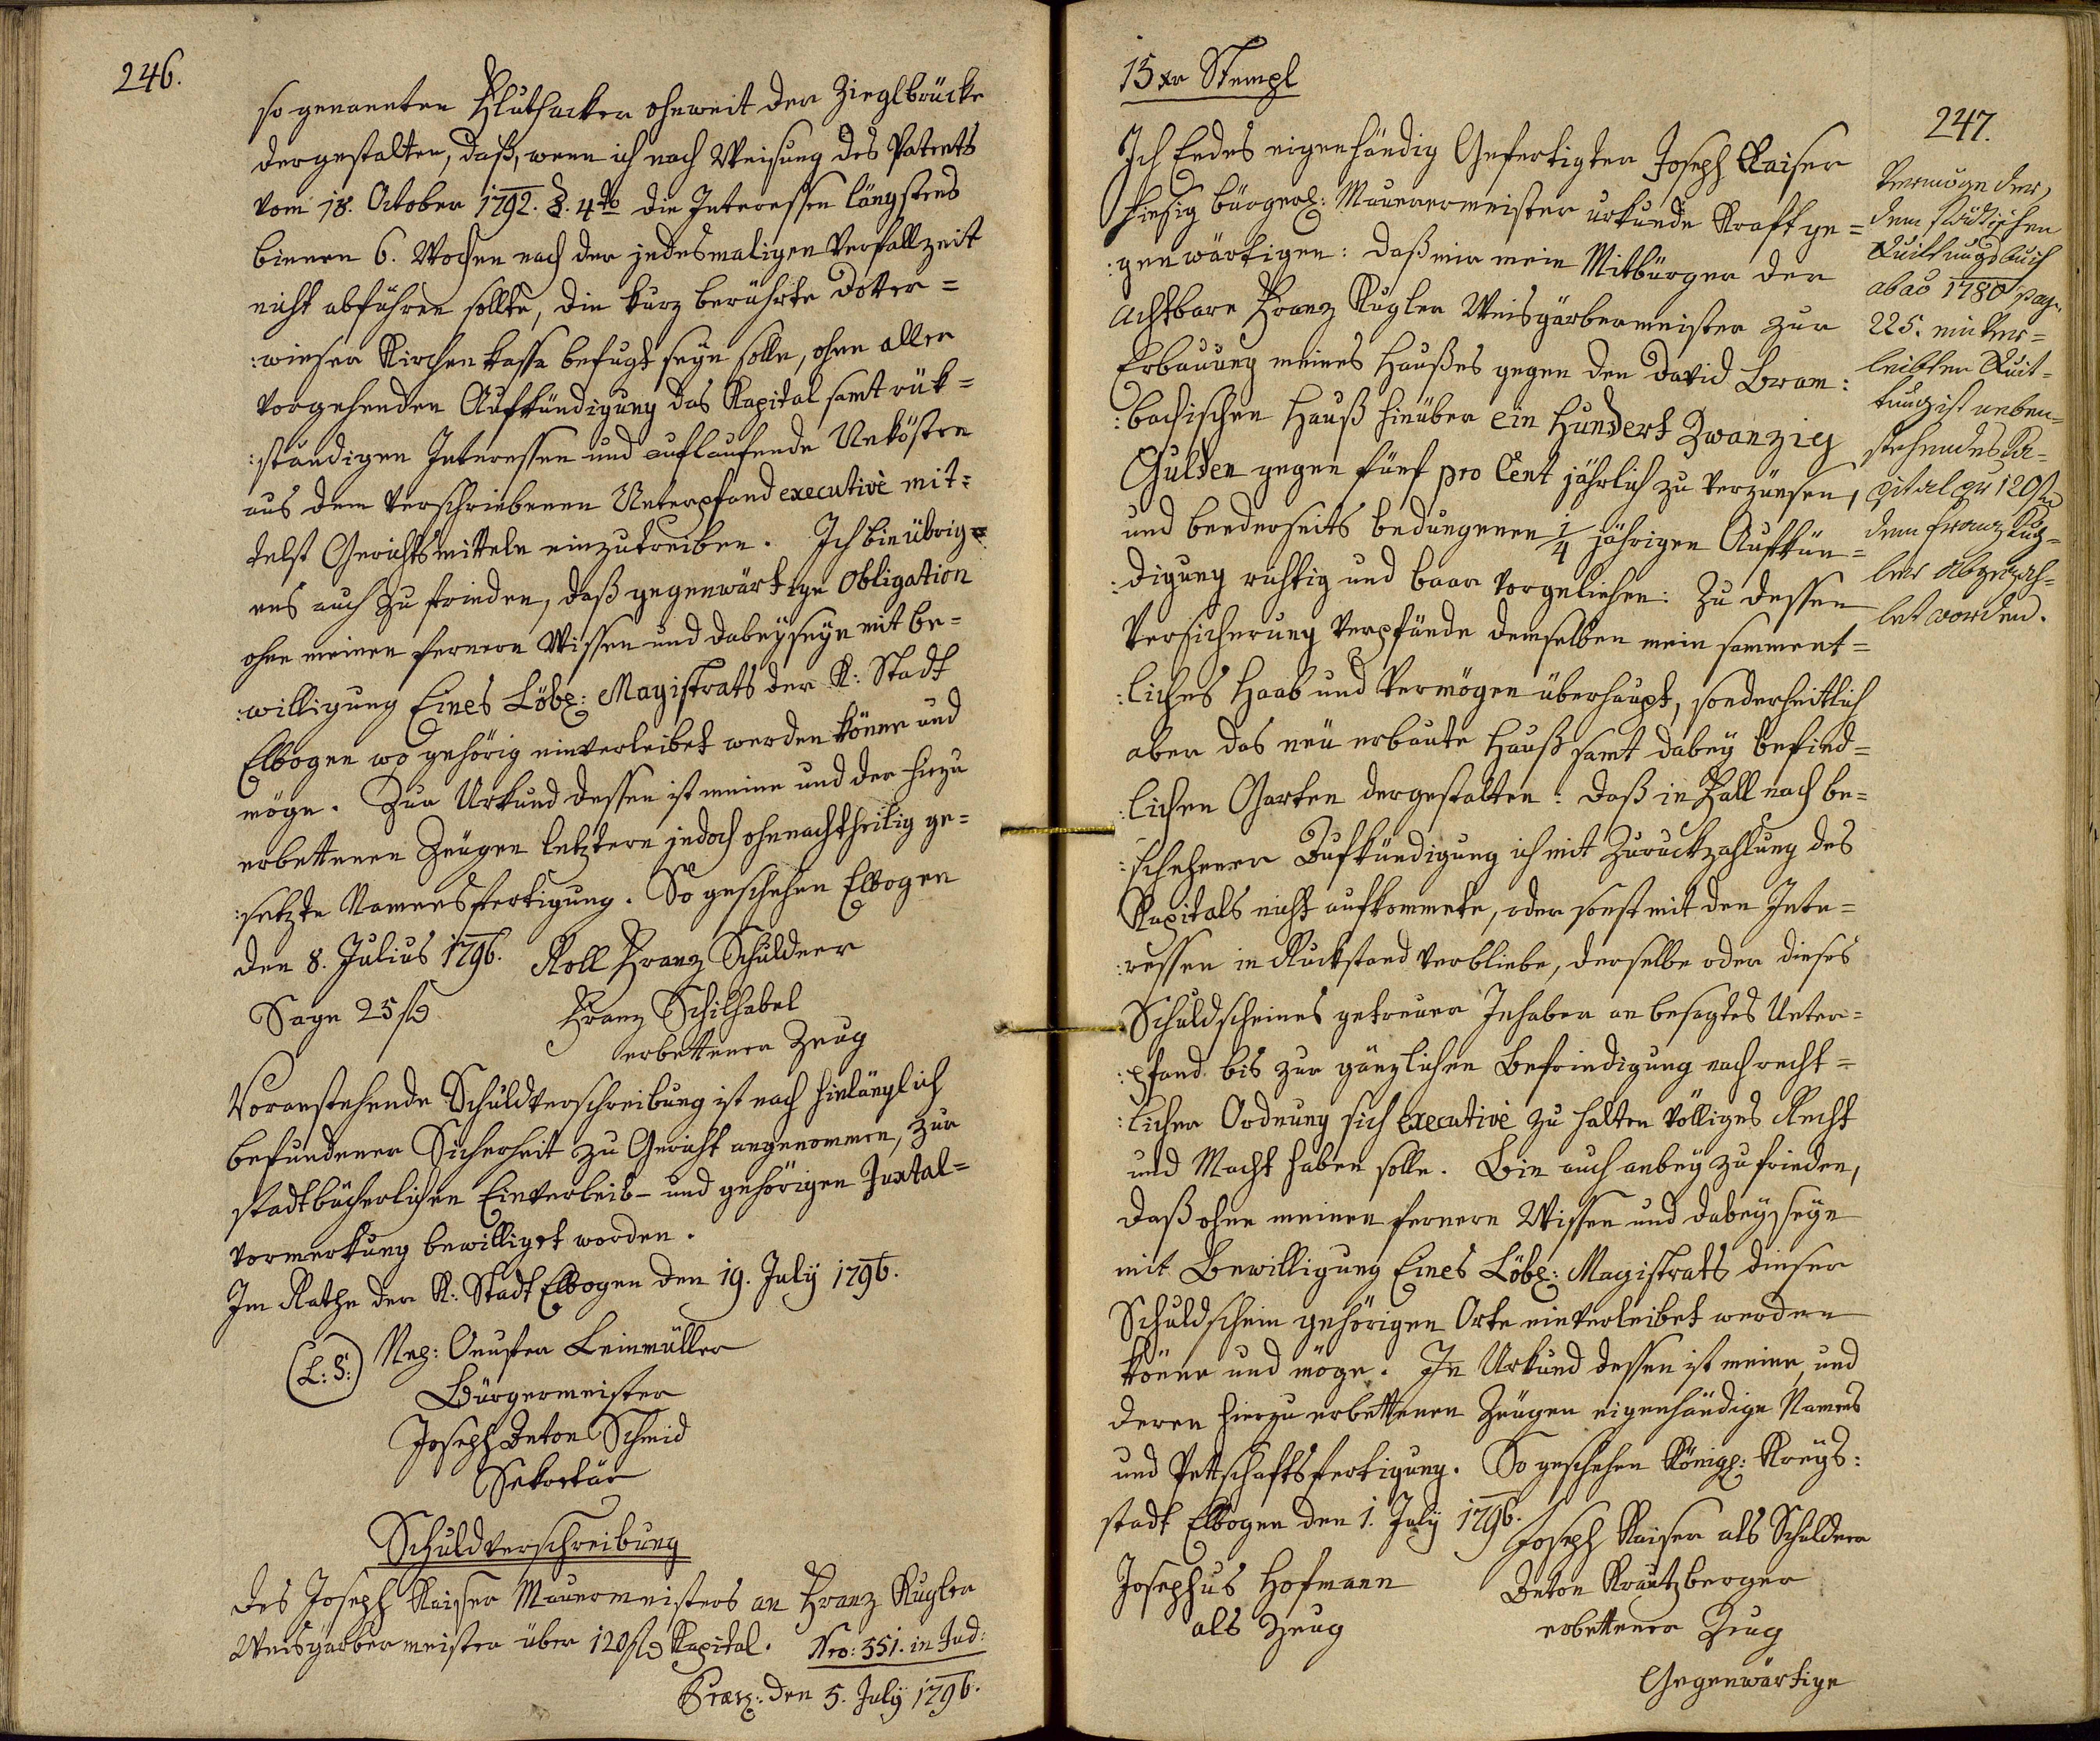 246.
so genannten Fluthacker ohnweit der Zieglbrücke
dergestalten, daß, wenn ich nach Weisung des Patents
vom 18. October 1792. §. 4to die Interessen längstens
binnen 6. Wochen nach der jedesmaligen Verfallzeit
nicht abführen sollte, die kurz berührte Dotter=
:wieser Kirchenkassa befugt seyn solle, ohne aller
vorgehenden Aufkündigung das Kapital samt rük=
:ständigen Interessen und auflaufende Unkösten
aus dem verschriebenen Unterpfand executivè mit=
telst Gerichtsmitteln einzutreiben. Ich bin übrig=
ens auch zu frieden, daß gegenwärtige Obligation
ohne meinen fernern Wissen und dabeyseyn mit be=
:willigung Eines Löbl: Magistrats der K: Stadt
Elbogen wo gehörig einverleibet werden könne und
möge. Zur Urkund dessen ist meine und der hiezu
erbettenen Zeugen letztern jedoch ohnnachtheilig ge=
:setzte Namensfertigung. So geschehen Elbogen
den 8. Julius 1796. Roll Franz Schuldner
Sage 25 fl
Franz Schilhabel
erbettener Zeug
Voranstehende Schuldverschreibung ist nach hinlänglich
befundener Sicherheit zu Gericht angenommen, zur
stadtbücherlichen Einverleib- und gehörigen Juxtal=
vormerkung bewilliget worden.
Im Rathe der K: Stadt Elbogen den 19. July 1796.
(L: S:) Leinmüller
Bürgermeister
Joseph Anton Schmid
Sekretär
Schuldverschreibung
des Joseph Kaiser Mauermeisters an Franz Kugler
Weisgärbermeister über 120 fl Kapital. Nro: 351. in Jud:
Præs: den 5. July 1796.
15 xr Stempl
247.
Ich Endes eigenhändig Gefertigter Joseph Kaiser
hiesig bürgerl: Mauerermeister urkunde Kraft ge=
:genwärtigen: daß mir mein Mitbürger der
achtbare Franz Kugler Weisgärbermeister zur
Erbauung meines Haußes gegen den David Bram:
:bachischen Hauß hinüber ein Hundert Zwanzig
Gulden gegen fünf pro Cent jährlich zu verzünsen,
und beederseits bedungenen 1/4 jährigen Aufkün=
:digung richtig und baar vorgeliehen: Zu dessen
Versicherung verpfände demselben mein samment=
:liches Haab und Vermögen überhaupt, sonderheitlich
aber das neu erbaute Hauß samt dabey befind=
:lichen Garten dergestalten: Daß in Fall nach be=
:schehener Aufkündigung ich mit Zuruckzahlung des
Kapitals nicht aufkommete, oder sonst mit den Inte=
:ressen in Ruckstand verbliebe, derselbe oder dieses
Schuldscheines getreuer Inhaber an besagtes Unter=
:pfand bis zur gänzlichen Befriedigung nach recht=
:licher Ordnung sich executivè zu halten völliges Recht
und Macht haben solle. Bin auch anbey zufrieden,
daß ohne meinen fernern Wissen und dabeyseyn
mit Bewilligung Eines Löbl: Magistrats dieser
Schuldschein gehörigen Orte einverleibet werden
könne und möge. In Urkund dessen ist meine, und
deren hierzu erbettenen Zeugen eigenhändige Namens
und Pettschaftsfertigung. So geschehen Königl: Kreys:
stadt Elbogen den 1. July 1796.
Joseph Kaiser als Schuldner
Josephus Hofmann
als Zeug
Anton Krautzberger
erbettener Zeug
Gegenwärtige
Vermöge der,
dem städtischen
Quittungsbuch
ab ao 1780 pag.
225. einver=
leibten Quit=
tung ist neben=
stehendes Ka=
pital zu 120 fl
dem Franz Kug=
ler abgezah=
let worden.